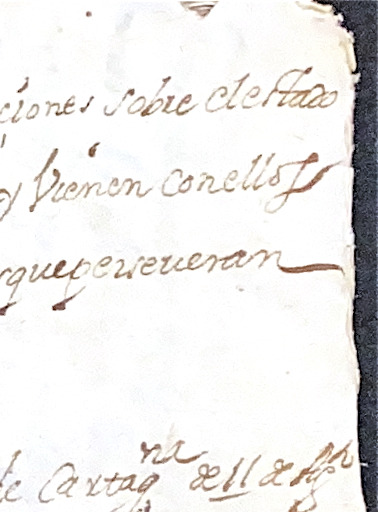 ciones sobre el estado
y vienen con ellos
que perseveran
de Cartagna de 11 de